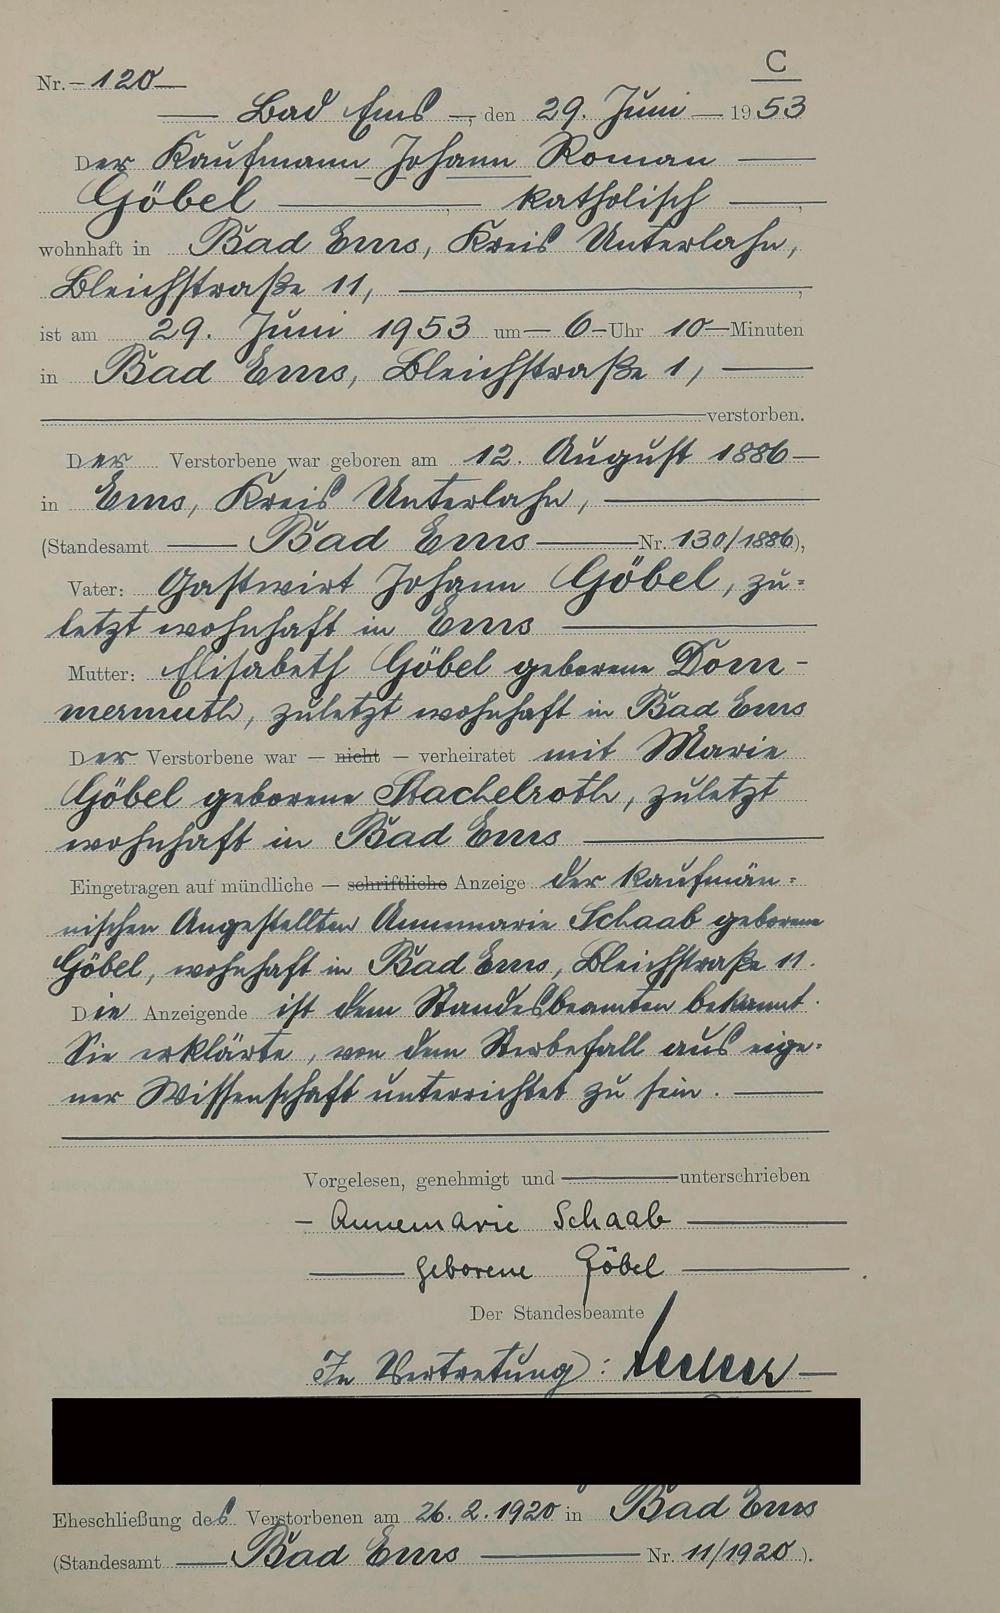 C
Nr. 120
Bad Ems, den 29. Juni 1953
Der Kaufmann Johann Roman
Göbel katholisch
wohnhaft in Bad Ems, Kreis Unterlahn,
Bleichstraße 11,
ist am 29. Juni 1953 um 6 Uhr 10 Minuten
in Bad Ems, Bleichstraße 1,
verstorben.
Der Verstorbene war geboren am 12. August 1886
in Ems, Kreis Unterlahn,
(Standesamt Bad Ems Nr. 130/1886),
Vater: Gastwirt Johann Göbel, zu=
letzt wohnhaft in Ems
Mutter: Elisabeth Göbel geborene Dom-
mermuth, zuletzt wohnhaft in Bad Ems
Der Verstorbene war — nicht — verheiratet mit Marie
Göbel geborene Stachelroth, zuletzt
wohnhaft in Bad Ems
Eingetragen auf mündliche — schriftliche Anzeige der kaufmän=
nischen Angestellten Annemarie Schaab geborene
Göbel, wohnhaft in Bad Ems, Bleichstraße 11.
Die Anzeigende ist dem Standesbeamten bekannt.
Sie erklärte, von dem Sterbefall aus eige=
ner Wissenschaft unterrichtet zu sein.
Vorgelesen, genehmigt und unterschrieben
Annemarie Schaab
geborene Göbel
Der Standesbeamte
In Vertretung:
Eheschließung des Verstorbenen am 26.2.1920 in Bad Ems
(Standesamt Bad Ems Nr. 11/1920).